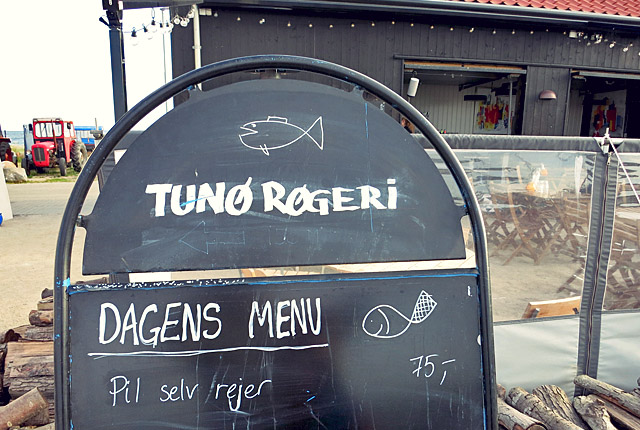 TUNØ RØGERi
DAGENS MENU
Pil selv rejer
75,-